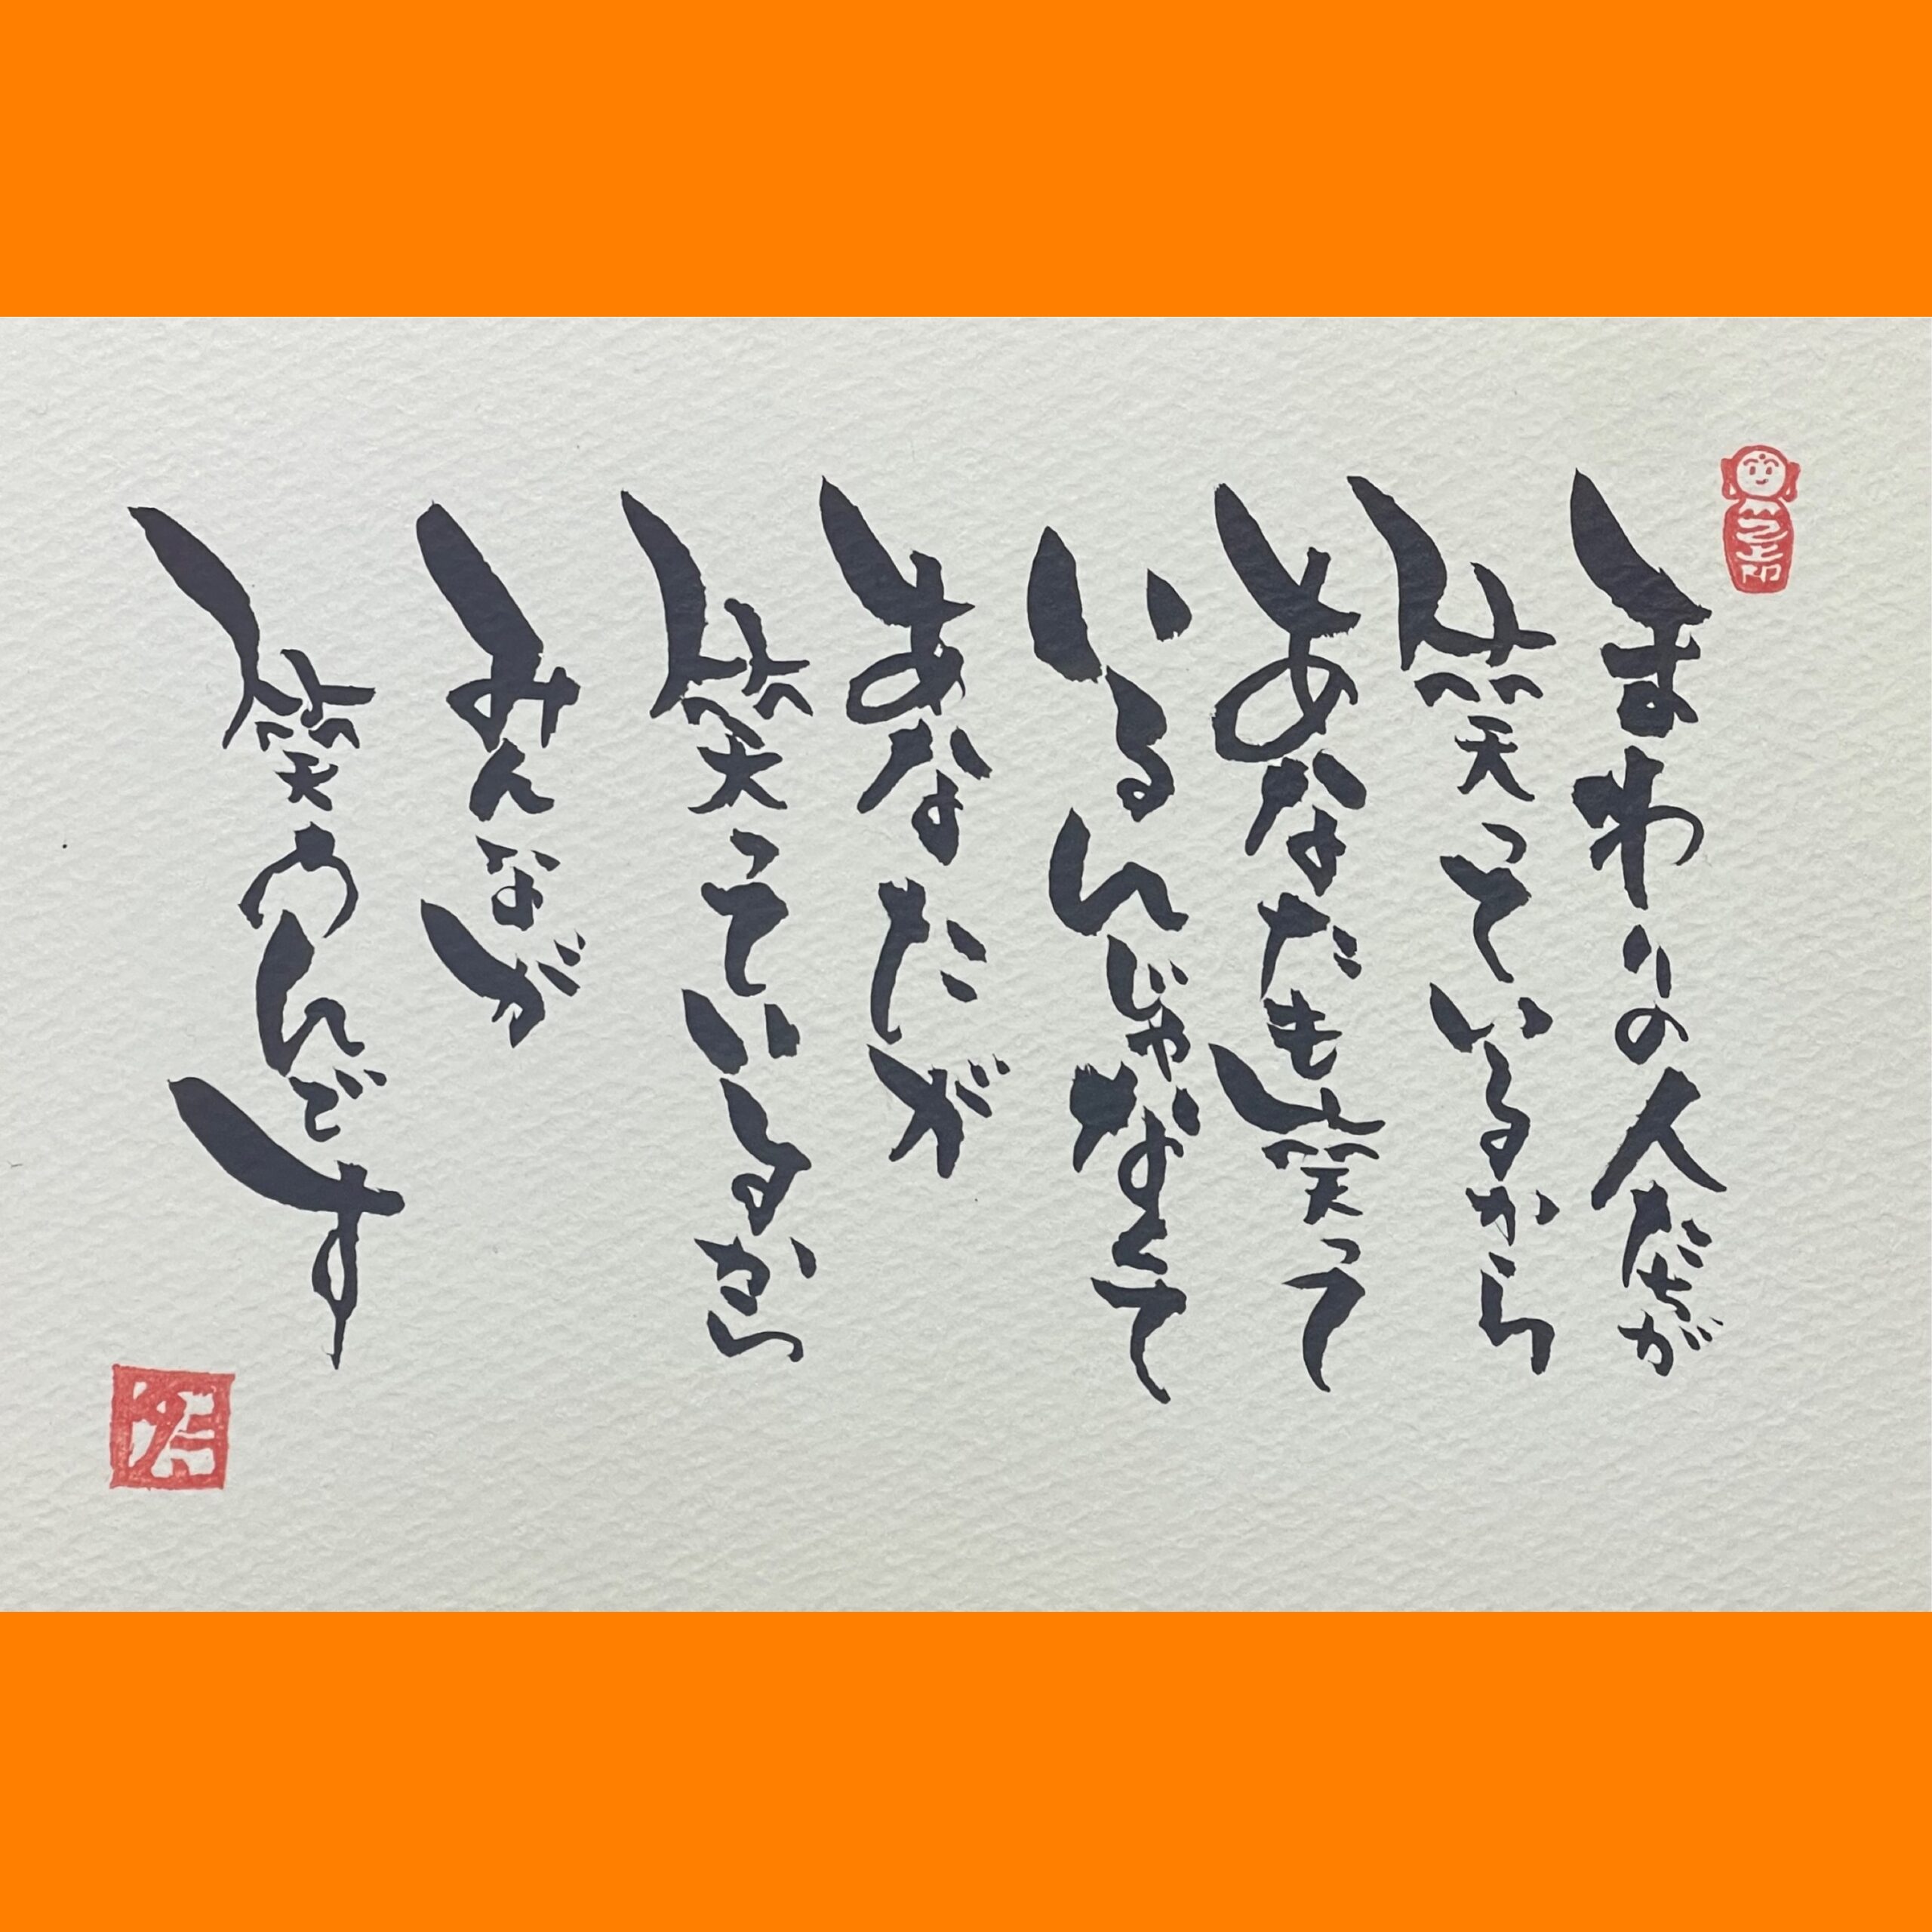 まわりの人たちが
笑っているから
あなたも笑って
いるんじゃなくて
あなたが
笑っているから
みんなが
笑うんです